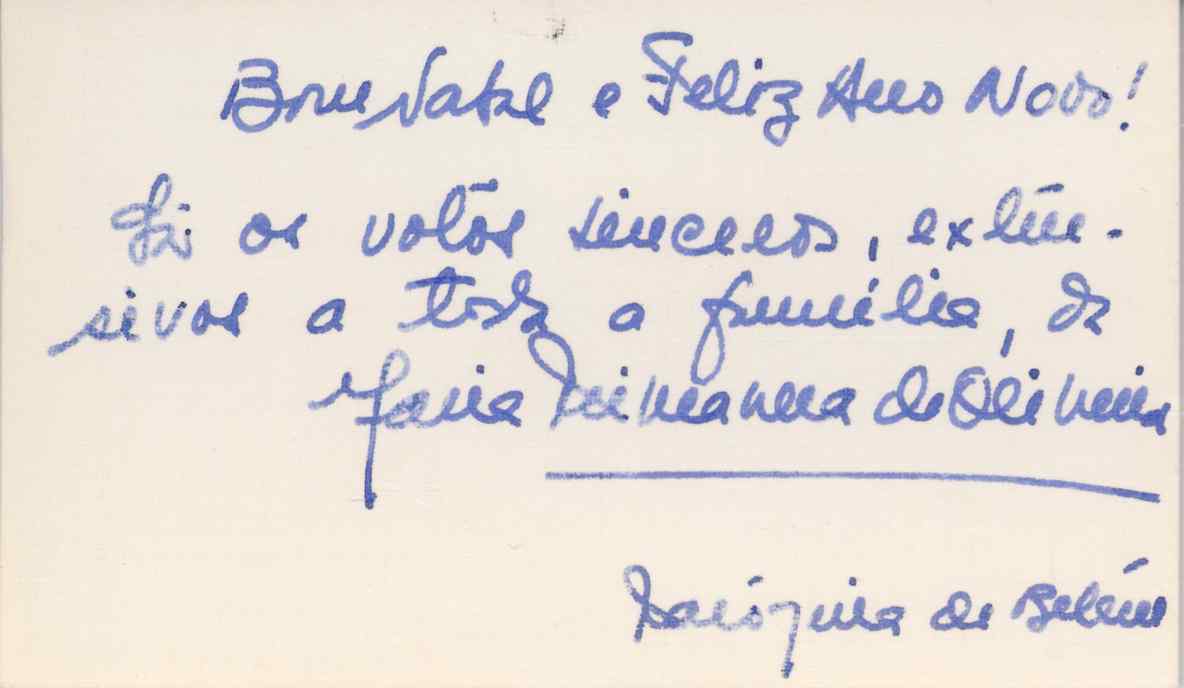 Bom Natal e Feliz Ano Novo!
São os votos sinceros, exten-
sivos a toda a família, da
Maria de Oliveira
Paróquia de Belém